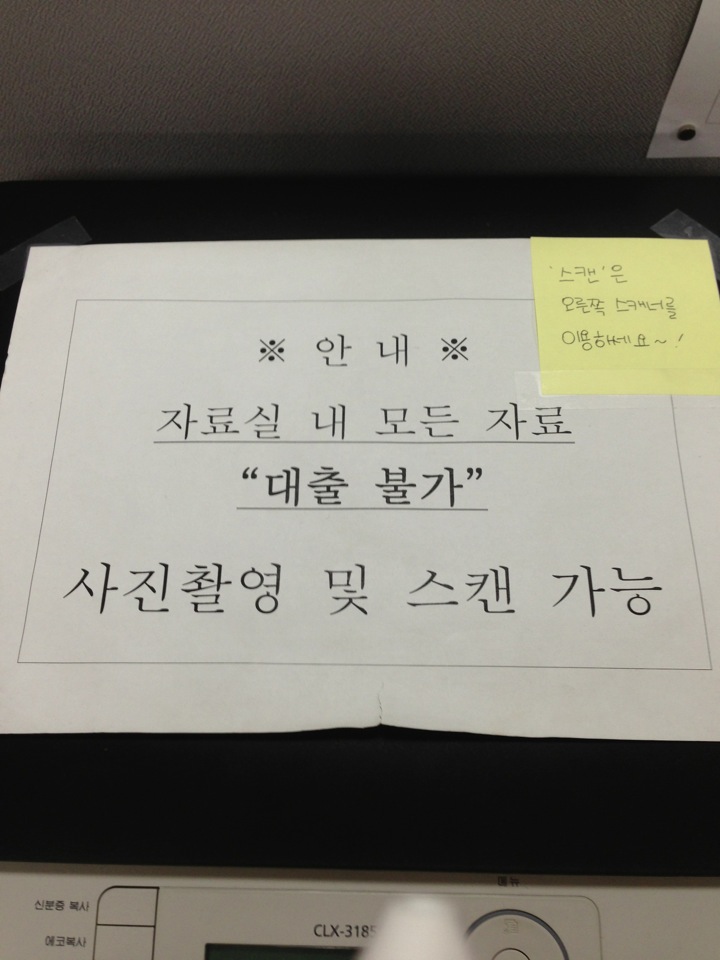 ※ 안 내 ※
자료실 내 모든 자료
“대출 불가”
사진촬영 및 스캔 가능
'스캔'은
오른쪽 스캐너를
이용하세요~!
메뉴
신분증 복사
에코복사
CLX-3185